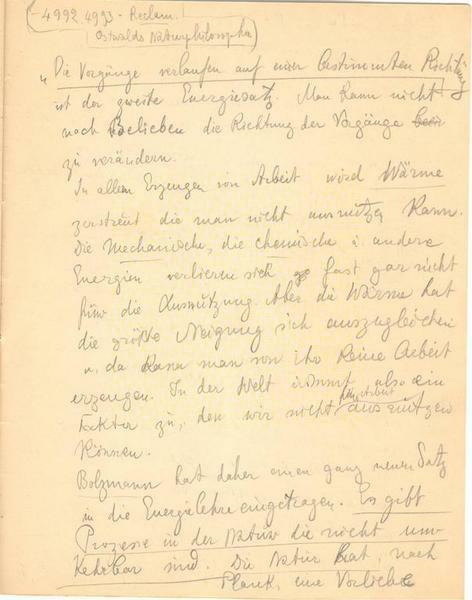 (-4992.4993 - Reclam.
Ostwalds Naturphilosophie)
"Die Vorgänge verlaufen auf einer bestimmten Richtung
ist der zweite Energiesatz. Man kann nicht
nach Belieben die Richtung der Vorgänge
zu verändern.
In allem Erzeugen von Arbeit wird Wärme
zerstreut die man nicht ausnützen kann.
Die Mechanische, die chemische u. andere
Energien verlieren sich fast gar nicht
für die Ausnützung. Aber die Wärme hat
die größte Neigung sich auszugleichen
u. da kann man von ihr keine Arbeit
erzeugen. In der Welt kommt also ein
Faktor zu, den wir nicht für Arbeit ausnützen
können.
Bolzmann hat daher einen ganz neuen Satz
in die Energielehre eingetragen. Es gibt
Prozesse in der Natur die nicht um-
kehrbar sind. Die Natur hat, nach
Plank, eine Vorliebe